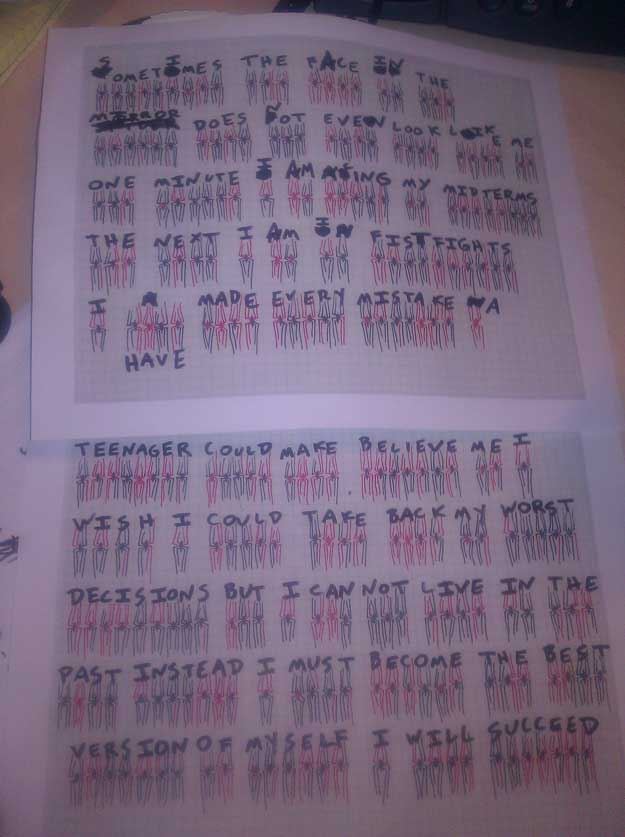 SOMETIMES THE FACE IN THE
MIRROR DOES NOT EVEN LOOK LIKE ME
ONE MINUTE I AM ACING MY MIDTERMS
THE NEXT I AM IN FIST FIGHTS
I HAVE MADE EVERY MISTAKE A
TEENAGER COULD MAKE BELIEVE ME I
WISH I COULD TAKE BACK MY WORST
DECISIONS BUT I CAN NOT LIVE IN THE
PAST INSTEAD I MUST BECOME THE BEST
VERSION OF MYSELF I WILL SUCCEED